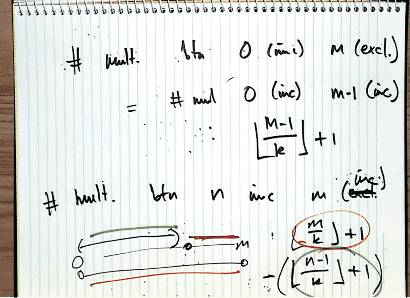 # mult. btn 0 (inc) m (excl.)
= # mul 0 (inc) m-1 (inc)
∴ ⌊M-1/k⌋ + 1
# mult. btn n inc m (inc.)
⌊m/k⌋ + 1
0 m
- (⌊n-1/k⌋ + 1)